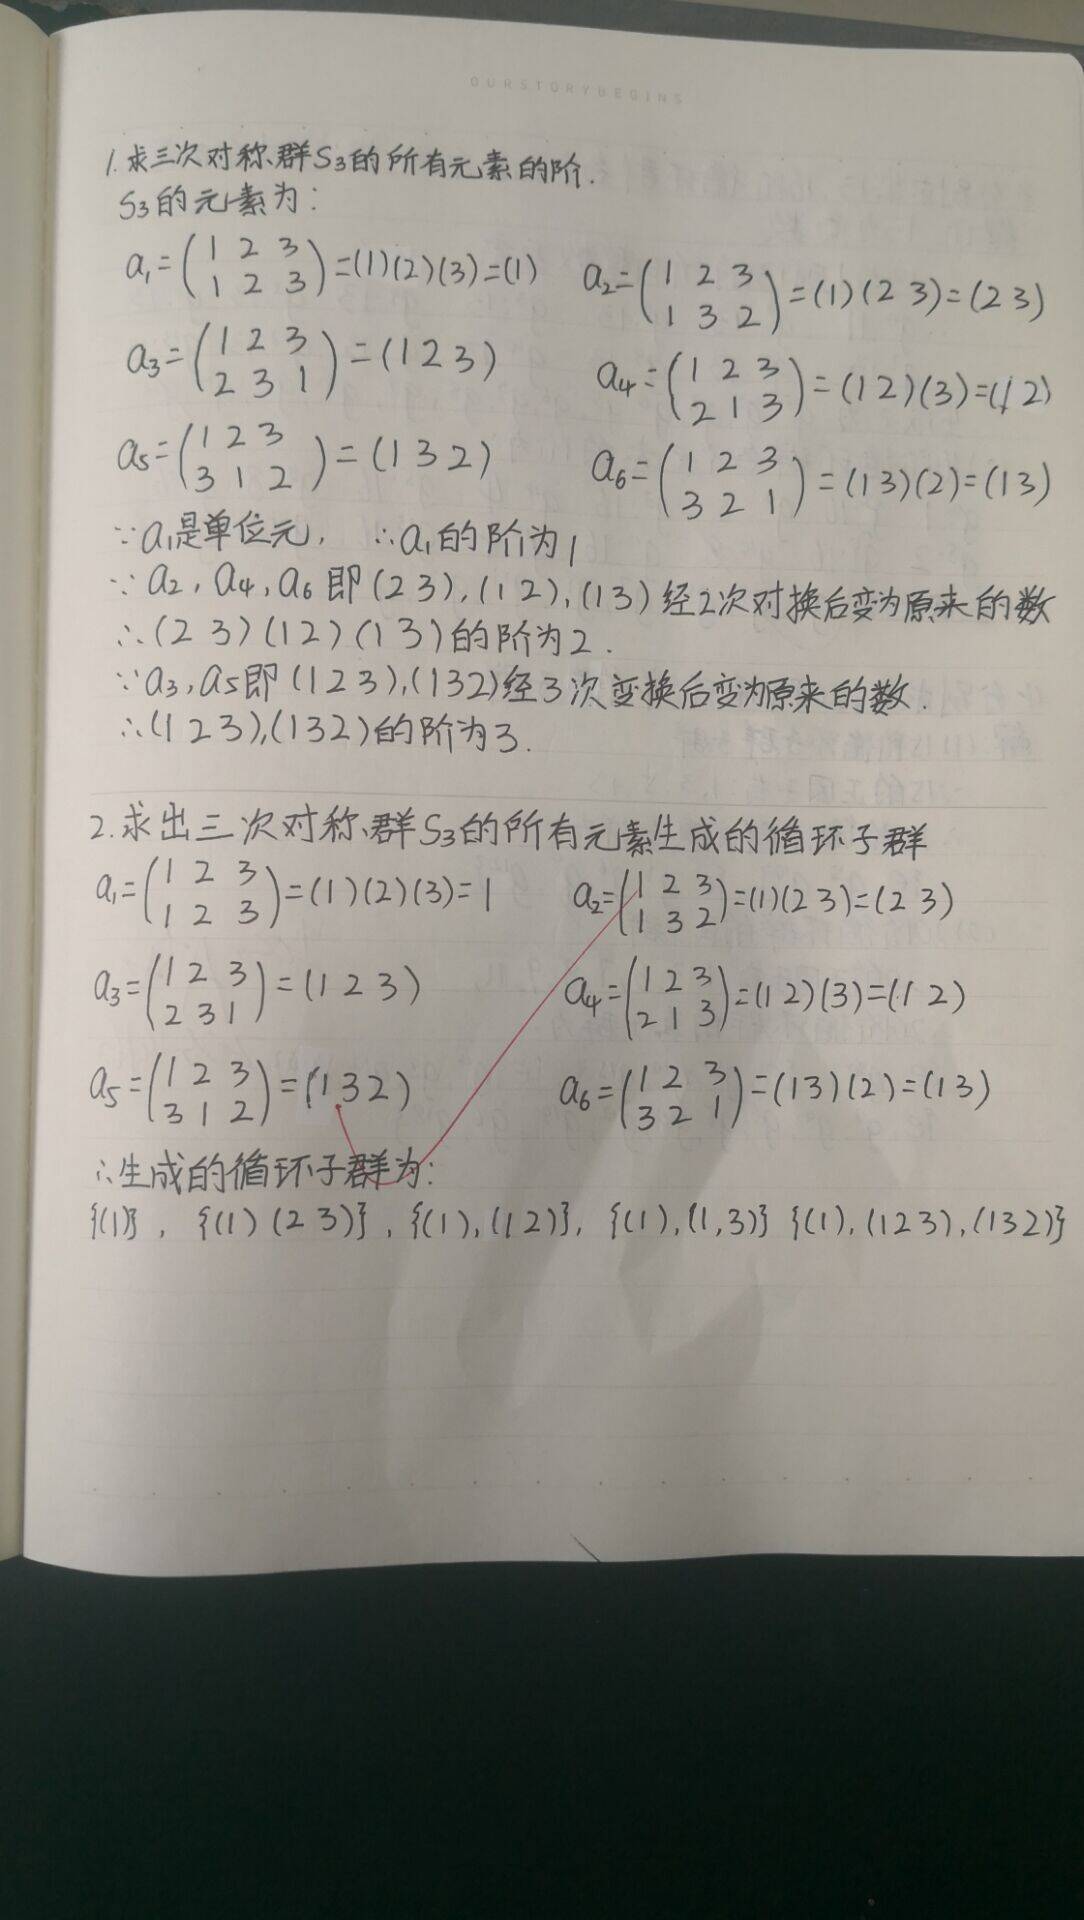 OURSTORYBEGINS
1.求三次对称群S₃的所有元素的阶.
S₃的元素为:
a₁=(1 2 3 / 1 2 3)=(1)(2)(3)=(1) a₂=(1 2 3 / 1 3 2)=(1)(2 3)=(2 3)
a₃=(1 2 3 / 2 3 1)=(1 2 3) a₄=(1 2 3 / 2 1 3)=(1 2)(3)=(1 2)
a₅=(1 2 3 / 3 1 2)=(1 3 2) a₆=(1 2 3 / 3 2 1)=(1 3)(2)=(1 3)
∵a₁是单位元, ∴a₁的阶为1
∵a₂,a₄,a₆即(2 3),(1 2),(1 3)经2次对换后变为原来的数
∴(2 3)(1 2)(1 3)的阶为2.
∵a₃,a₅即(1 2 3),(132)经3次变换后变为原来的数.
∴(1 2 3),(132)的阶为3.
2.求出三次对称群S₃的所有元素生成的循环子群
a₁=(1 2 3 / 1 2 3)=(1)(2)(3)=1 a₂=(1 2 3 / 1 3 2)=(1)(2 3)=(2 3)
a₃=(1 2 3 / 2 3 1)=(1 2 3) a₄=(1 2 3 / 2 1 3)=(1 2)(3)=(1 2)
a₅=(1 2 3 / 3 1 2)=(132) a₆=(1 2 3 / 3 2 1)=(13)(2)=(13)
∴生成的循环子群为:
{(1)}, {(1)(2 3)}, {(1),(12)}, {(1),(1,3)} {(1),(123),(132)}